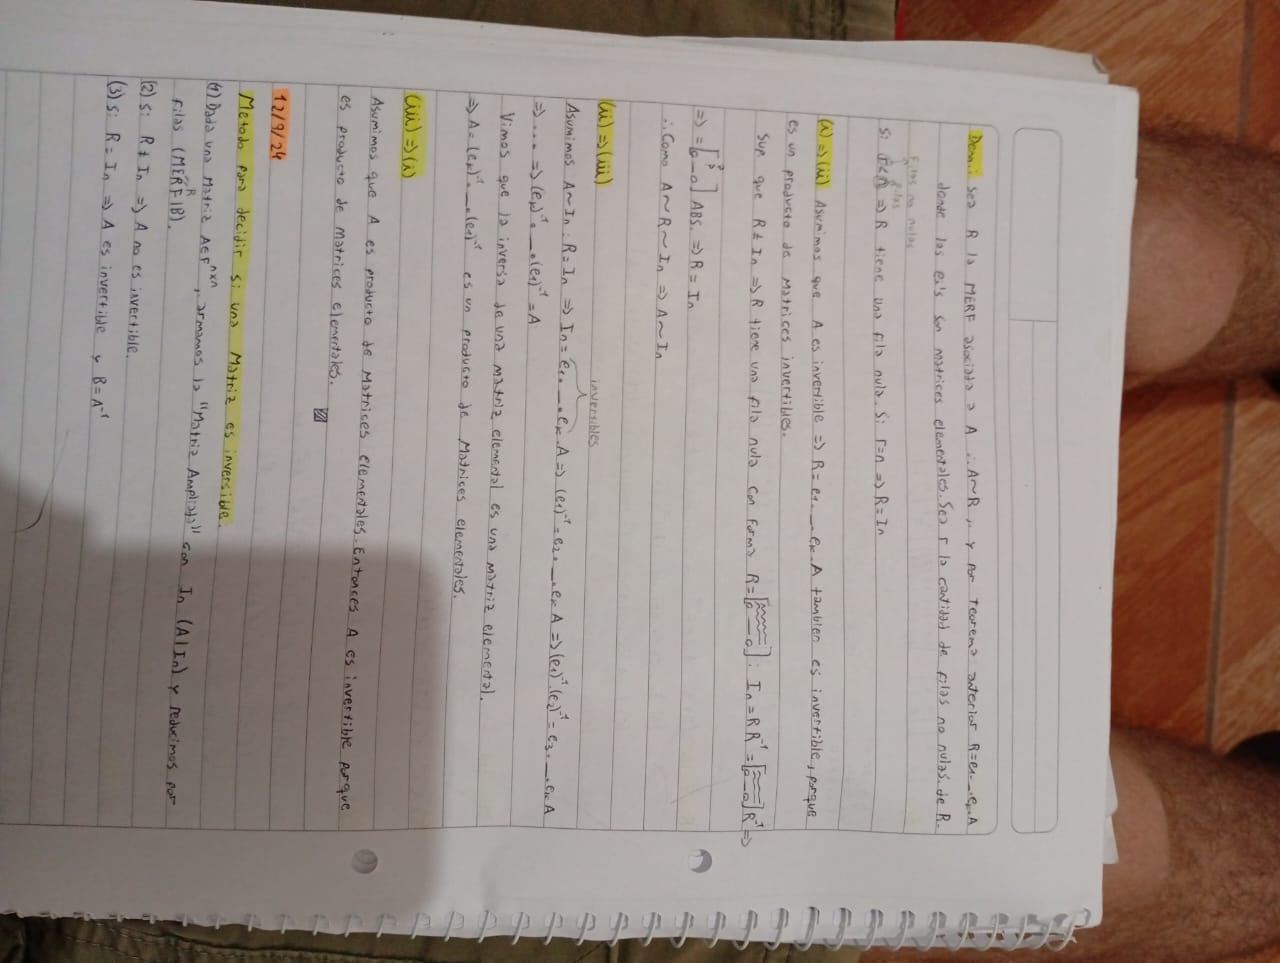 Dem.: Sea R la MERF asociada a A ∴ A~R, y por teorema anterior R=e1.__.ek.A
donde los ei's son matrices elementales. Sea r la cantidad de filas no nulas de R.
Filas no nulas
filas
Si r<n => R tiene una fila nula. Si r=n => R=In
(i)=>(ii) Asumimos que A es invertible => R=e1.__.ek.A tambien es invertible, porque
es un producto de matrices invertibles.
Sup que R≠In => R tiene una fila nula con forma R=[0_0]: In=RR⁻¹=[0_0]R⁻¹ =>
=> =[? ? 0_0] ABS. => R=In
∴ Como A~R~In => A~In
(ii)=>(iii)
invertibles
Asumimos A~In: R=In => In=e1.__.ek.A => (e1)⁻¹=e2.__.ek A => (e1)⁻¹.(e2)⁻¹=e3.__.ek A
=> .... => (ek)⁻¹.__.(e1)⁻¹=A
Vimos que la inversa de una matriz elemental es una matriz elemental.
=> A=(ek)⁻¹.__.(e1)⁻¹ es un producto de Matrices elementales.
(iii)=>(i)
Asumimos que A es producto de Matrices elementales. Entonces A es invertible porque
es producto de matrices elementales.
12/9/24
Metodo para decidir si una Matriz es inversible.
(1) Dada una Matriz A∈Fⁿˣⁿ, armamos la "Matriz Ampliada" con In (A|In) y reducimos por
R
filas (MERF|B).
(2) Si R≠In => A no es invertible.
(3) Si R=In => A es invertible y B=A⁻¹